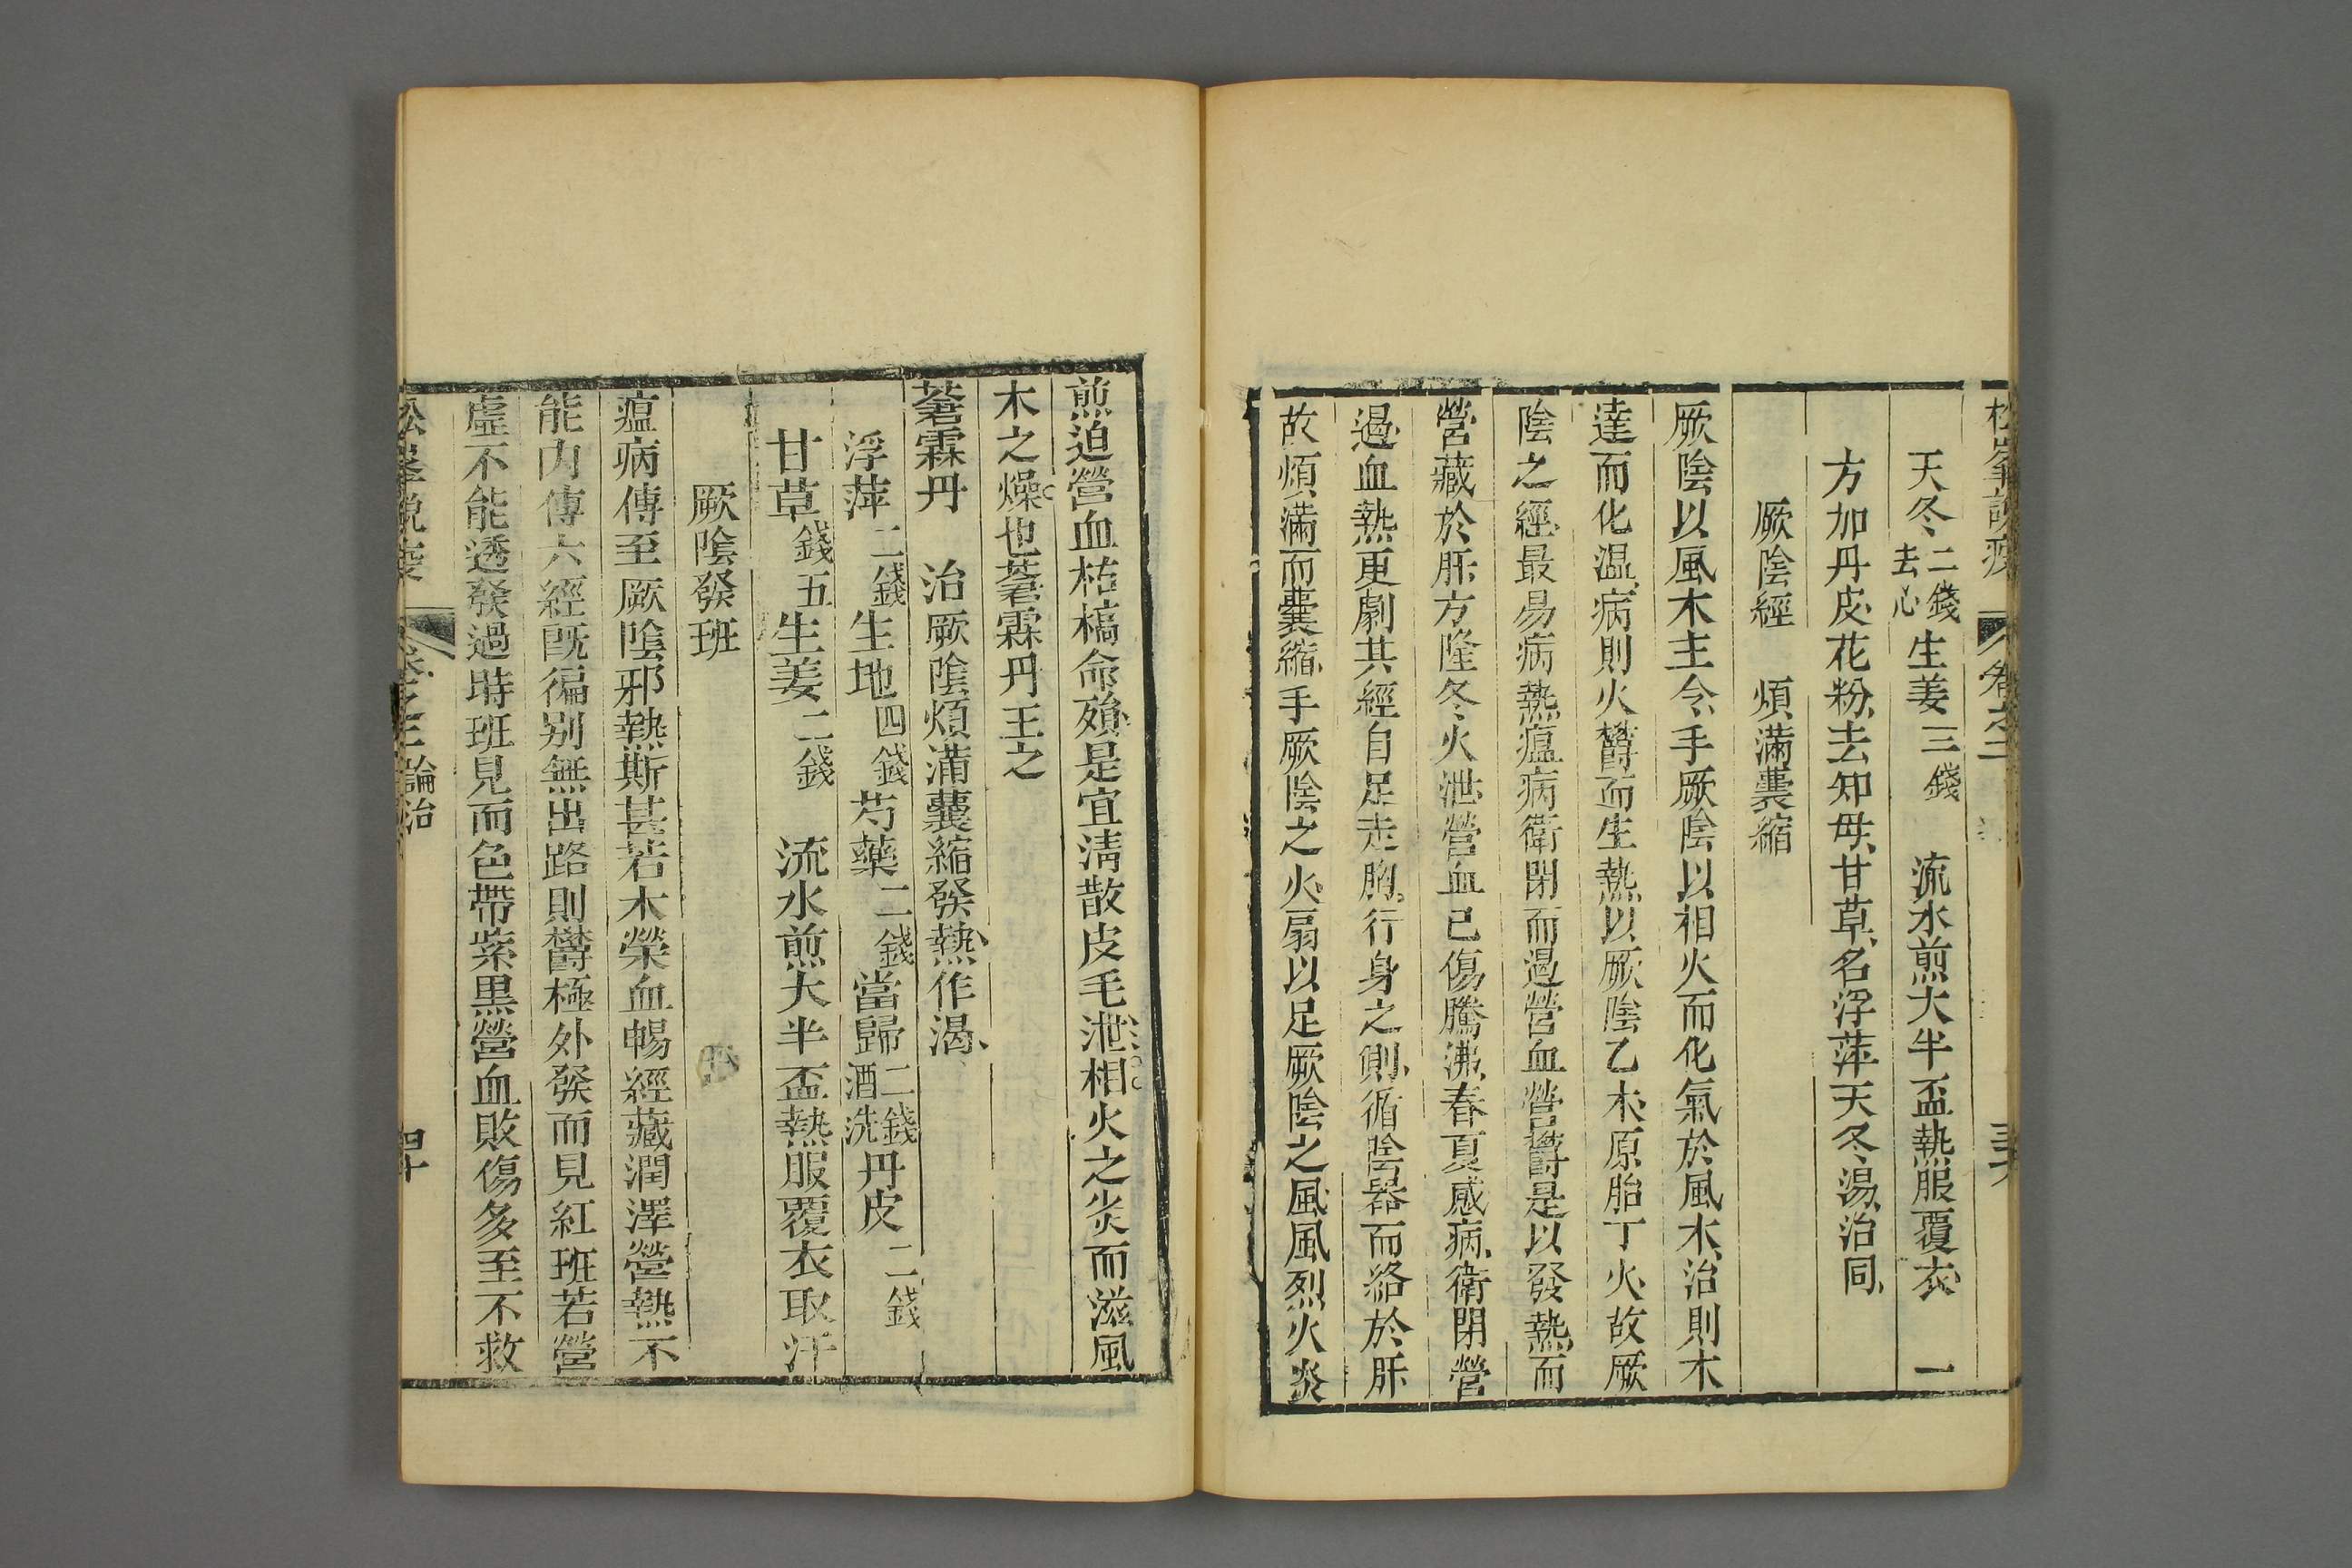 松峯說疫 卷之二 三十九
天冬二錢去心 生姜三錢 流水煎大半盃熱服覆衣 一
方加丹皮花粉去知母甘草名浮萍天冬湯治同
厥陰經 煩滿囊縮
厥陰以風木主令手厥陰以相火而化氣於風木治則木
達而化温病則火欝而生熱以厥陰乙木原胎丁火故厥
陰之經最易病熱瘟病衛閉而遏營血營欝是以發熱而
營藏於肝方隆冬火泄營血已傷騰沸春夏感病衛閉營
遏血熱更劇其經自足走胸行身之側循陰器而絡於肝
故煩滿而囊縮手厥陰之火扇以足厥陰之風風烈火炎
煎迫營血枯槁命殞是宜清散皮毛泄相火之炎而滋風
木之燥也荖霖丹王之
荖霖丹 治厥陰煩滿囊縮發熱作渴
浮萍二錢 生地四錢 芍藥二錢 當歸二錢酒洗 丹皮二錢
甘草錢五 生姜二錢 流水煎大半盃熱服覆衣取汗
厥陰發班
瘟病傳至厥陰邪熱斯甚若木榮血暢經藏潤澤營熱不
能内傳六經既徧别無出路則欝極外發而見紅班若營
虛不能透發過時班見而色帶紫黒營血敗傷多至不救
松峯說疫 卷之二 論治 四十